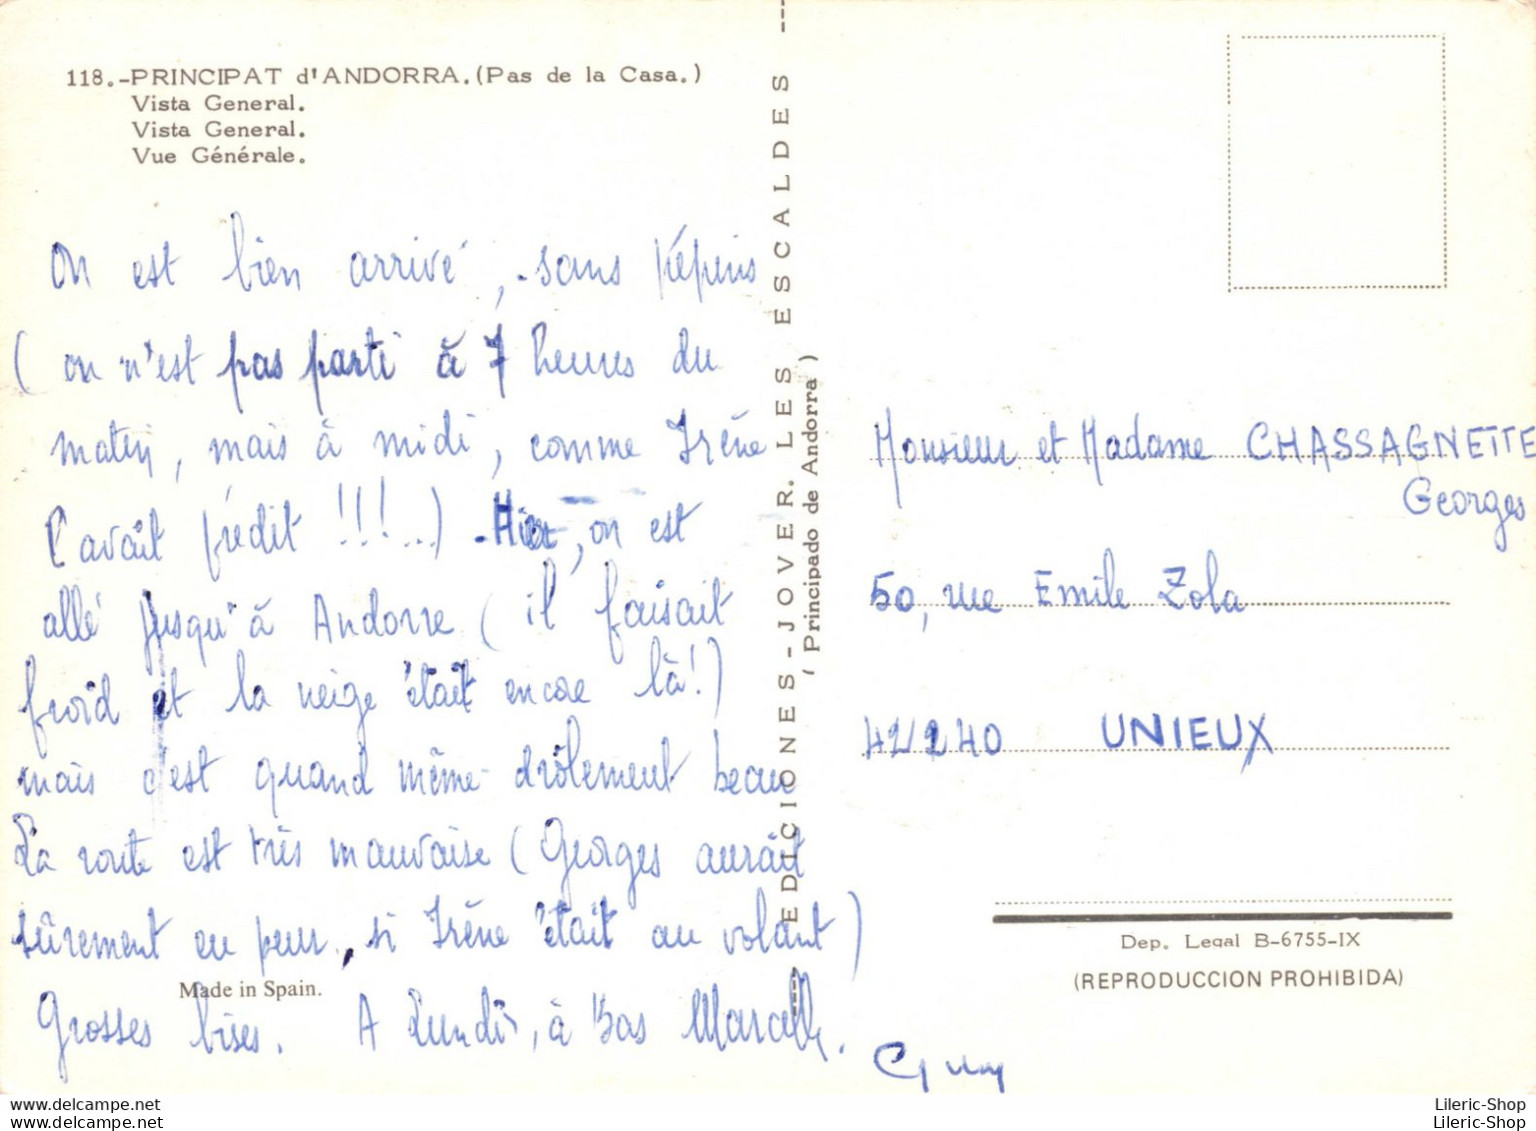 118.-PRINCIPAT d'ANDORRA.(Pas de la Casa.)
Vista General.
Vista General.
Vue Générale.
On est bien arrivé, sans
(on n'est pas parti à 7 heures du
matin, mais à midi, comme Irène
l'avait prédit !!!...) - Hier, on est
allé jusqu'à Andorre (il faisait
froid et la neige était encore là!)
mais c'est quand même drôlement beau
La route est très mauvaise (Georges aurait
sûrement eu peur, si Irène était au volant)
Made in Spain.
Grosses bises. A Lundi, à Bas
Guy
EDICIONES-JOVER. LES ESCALDES
(Principado de Andorra)
Monsieur et Madame CHASSAGNETTE
Georges
50, rue Emile Zola
42240 UNIEUX
Dep. Legal B-6755-IX
(REPRODUCCION PROHIBIDA)
Lileric-Shop.com
Lileric-Shop.com
Lileric-Shop
Lileric-Shop